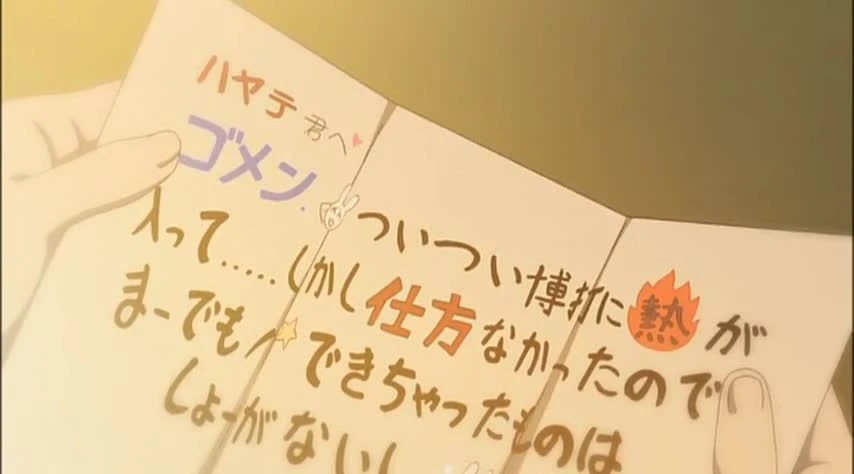 ハヤテ君へ
ゴメン. ついつい博打に熱が
入って.....しかし仕方なかったので
まーでも できちゃったものは
しょーがないし